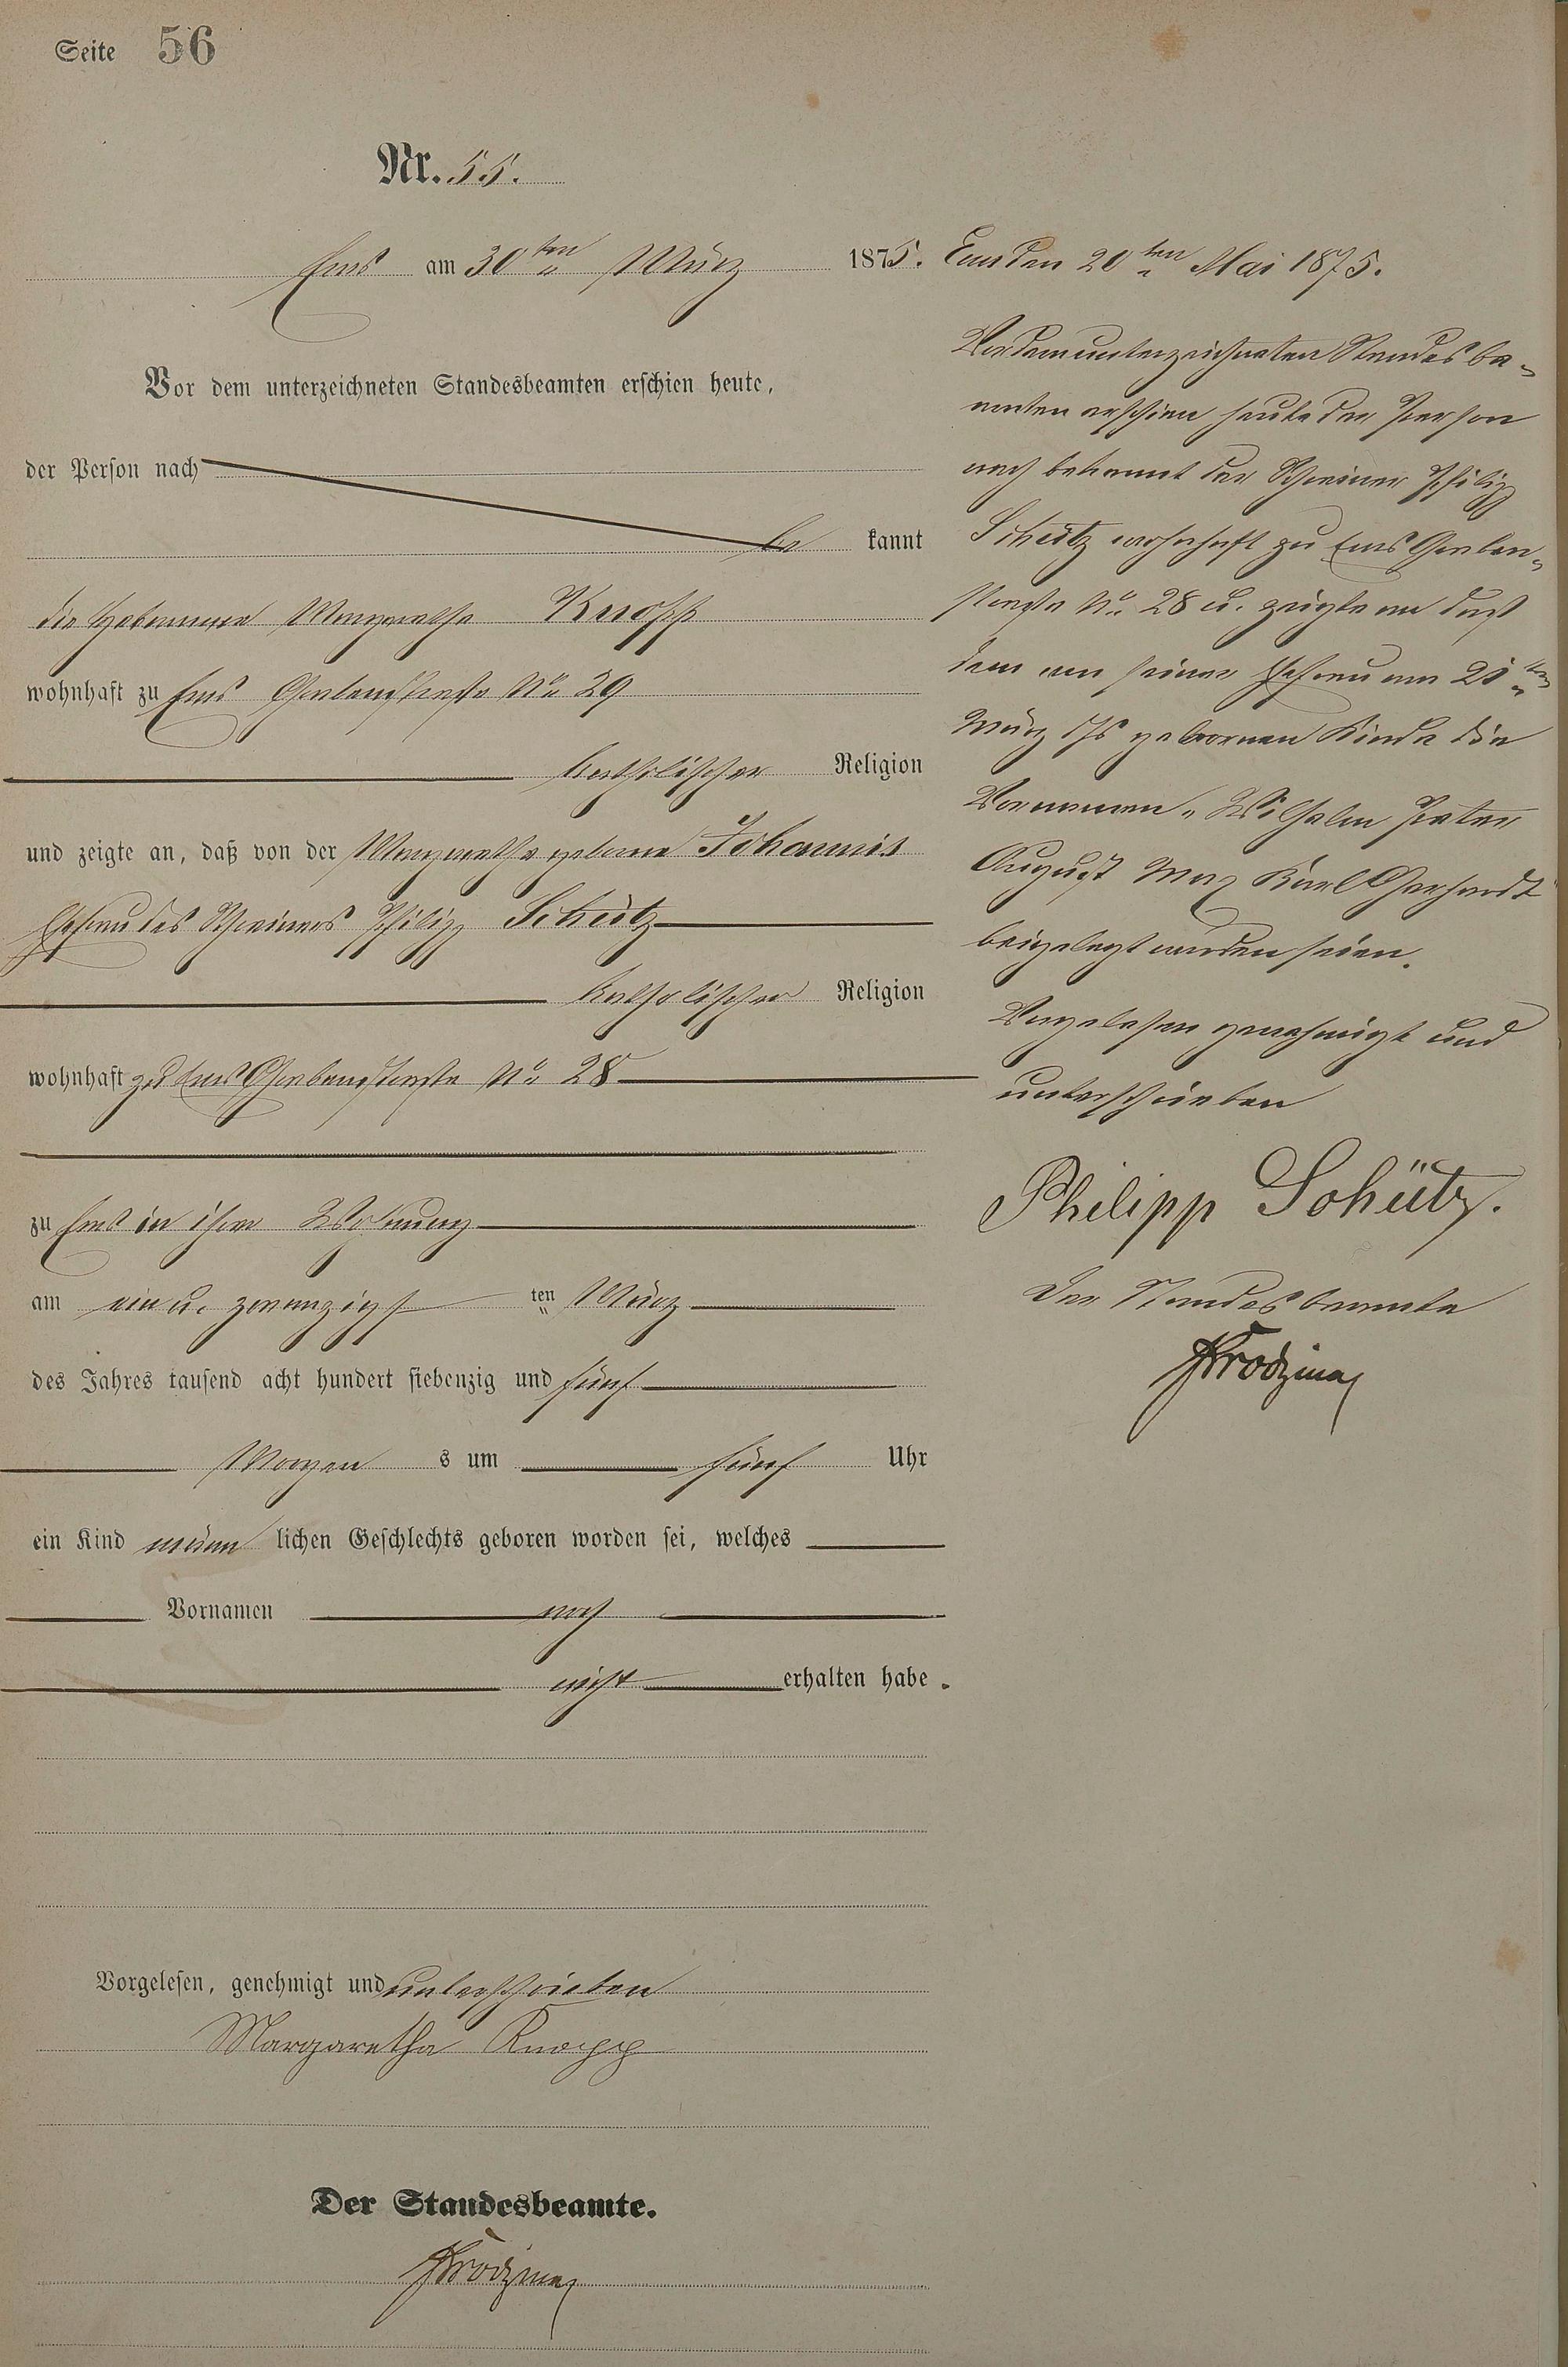 Seite 56
Nr. 55.
Ems am 30ten März 1875.
Vor dem unterzeichneten Standesbeamten erschien heute,
der Person nach
be kannt
die Hebamme Margaretha Knopp
wohnhaft zu Ems Grabenstraße No 29
katholischer Religion
und zeigte an, daß von der Margaretha geborne Johannis
Ehefrau des Schreiners Philipp Schütz
katholischer Religion
wohnhaft zu Ems Grabenstraße No 28
zu Ems in ihrer Wohnung
am ein u. zwanzigst ten März
des Jahres tausend acht hundert siebenzig und fünf
Morgen s um fünf Uhr
ein Kind männ lichen Geschlechts geboren worden sei, welches
Vornamen noch
nicht erhalten habe.
Vorgelesen, genehmigt und unterschrieben
Margaretha Knopp
Der Standesbeamte.
Ems den 20ten Mai 1875.
Vor dem unterzeichneten Standesbe-
amten erschien heute der Person
nach bekannt der Schreiner Philipp
Schütz wohnhaft zu Ems Graben-
straße No 28 u. zeigte an daß
dem von seiner Ehefrau am 21ten
März Js gebornen Kinde die
Vornamen "Wilhelm Peter
August Max Karl Gerhardt"
beigelegt worden seien.
Vorgelesen genehmigt und
unterschrieben
Philipp Schütz.
Der Standesbeamte